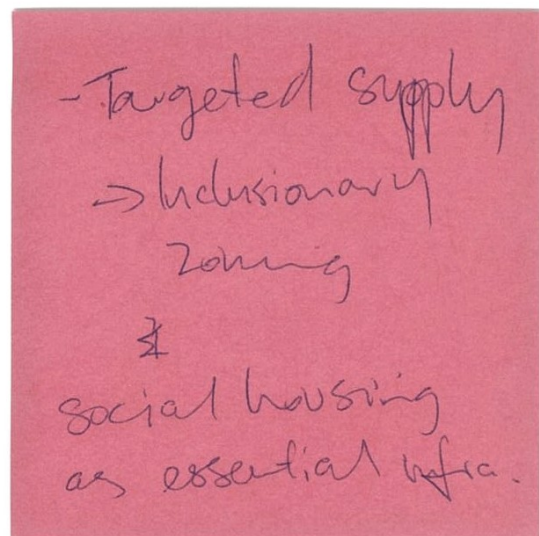 - Targeted supply
→ Inclusionary
zoning
&
social housing
as essential infra.